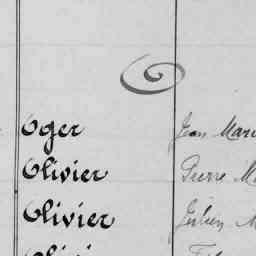 O
Oger Jean Mari
Olivier Pierre M
Olivier Julien M